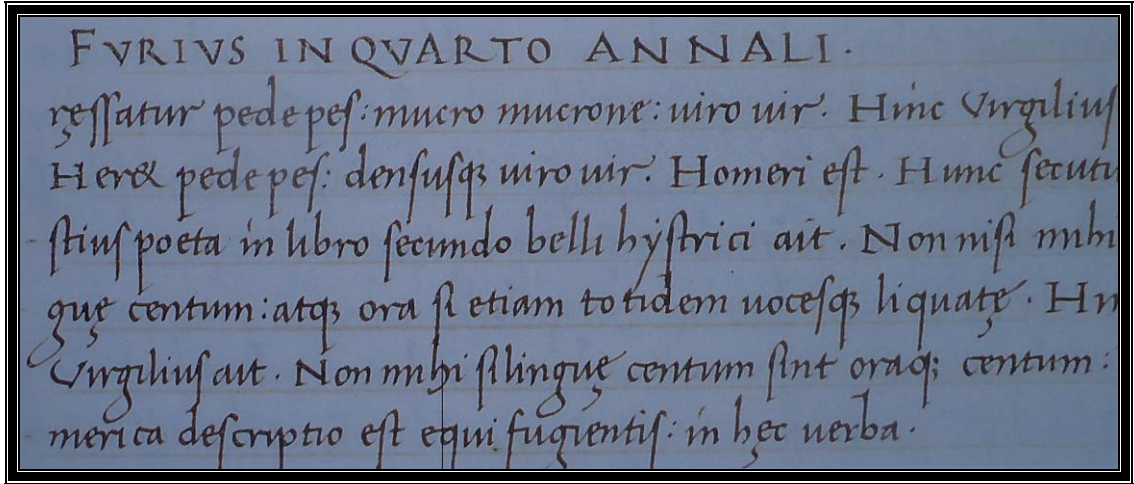 FVRIVS IN QVARTO ANNALI.
ręssatur pede pes: mucro mucrone: uiro uir. Hinc Virgilius
Heret pede pes: densusq; uiro uir. Homeri est. Hunc secutu
stius poeta in libro secundo belli hystrici ait. Non nisi mihi
guę centum: atq; ora si etiam totidem uocesq; liquatę. Hi
Virgilius ait. Non mihi si linguę centum sint oraq; centum:
merica descriptio est equi fugientis: in hęc uerba.